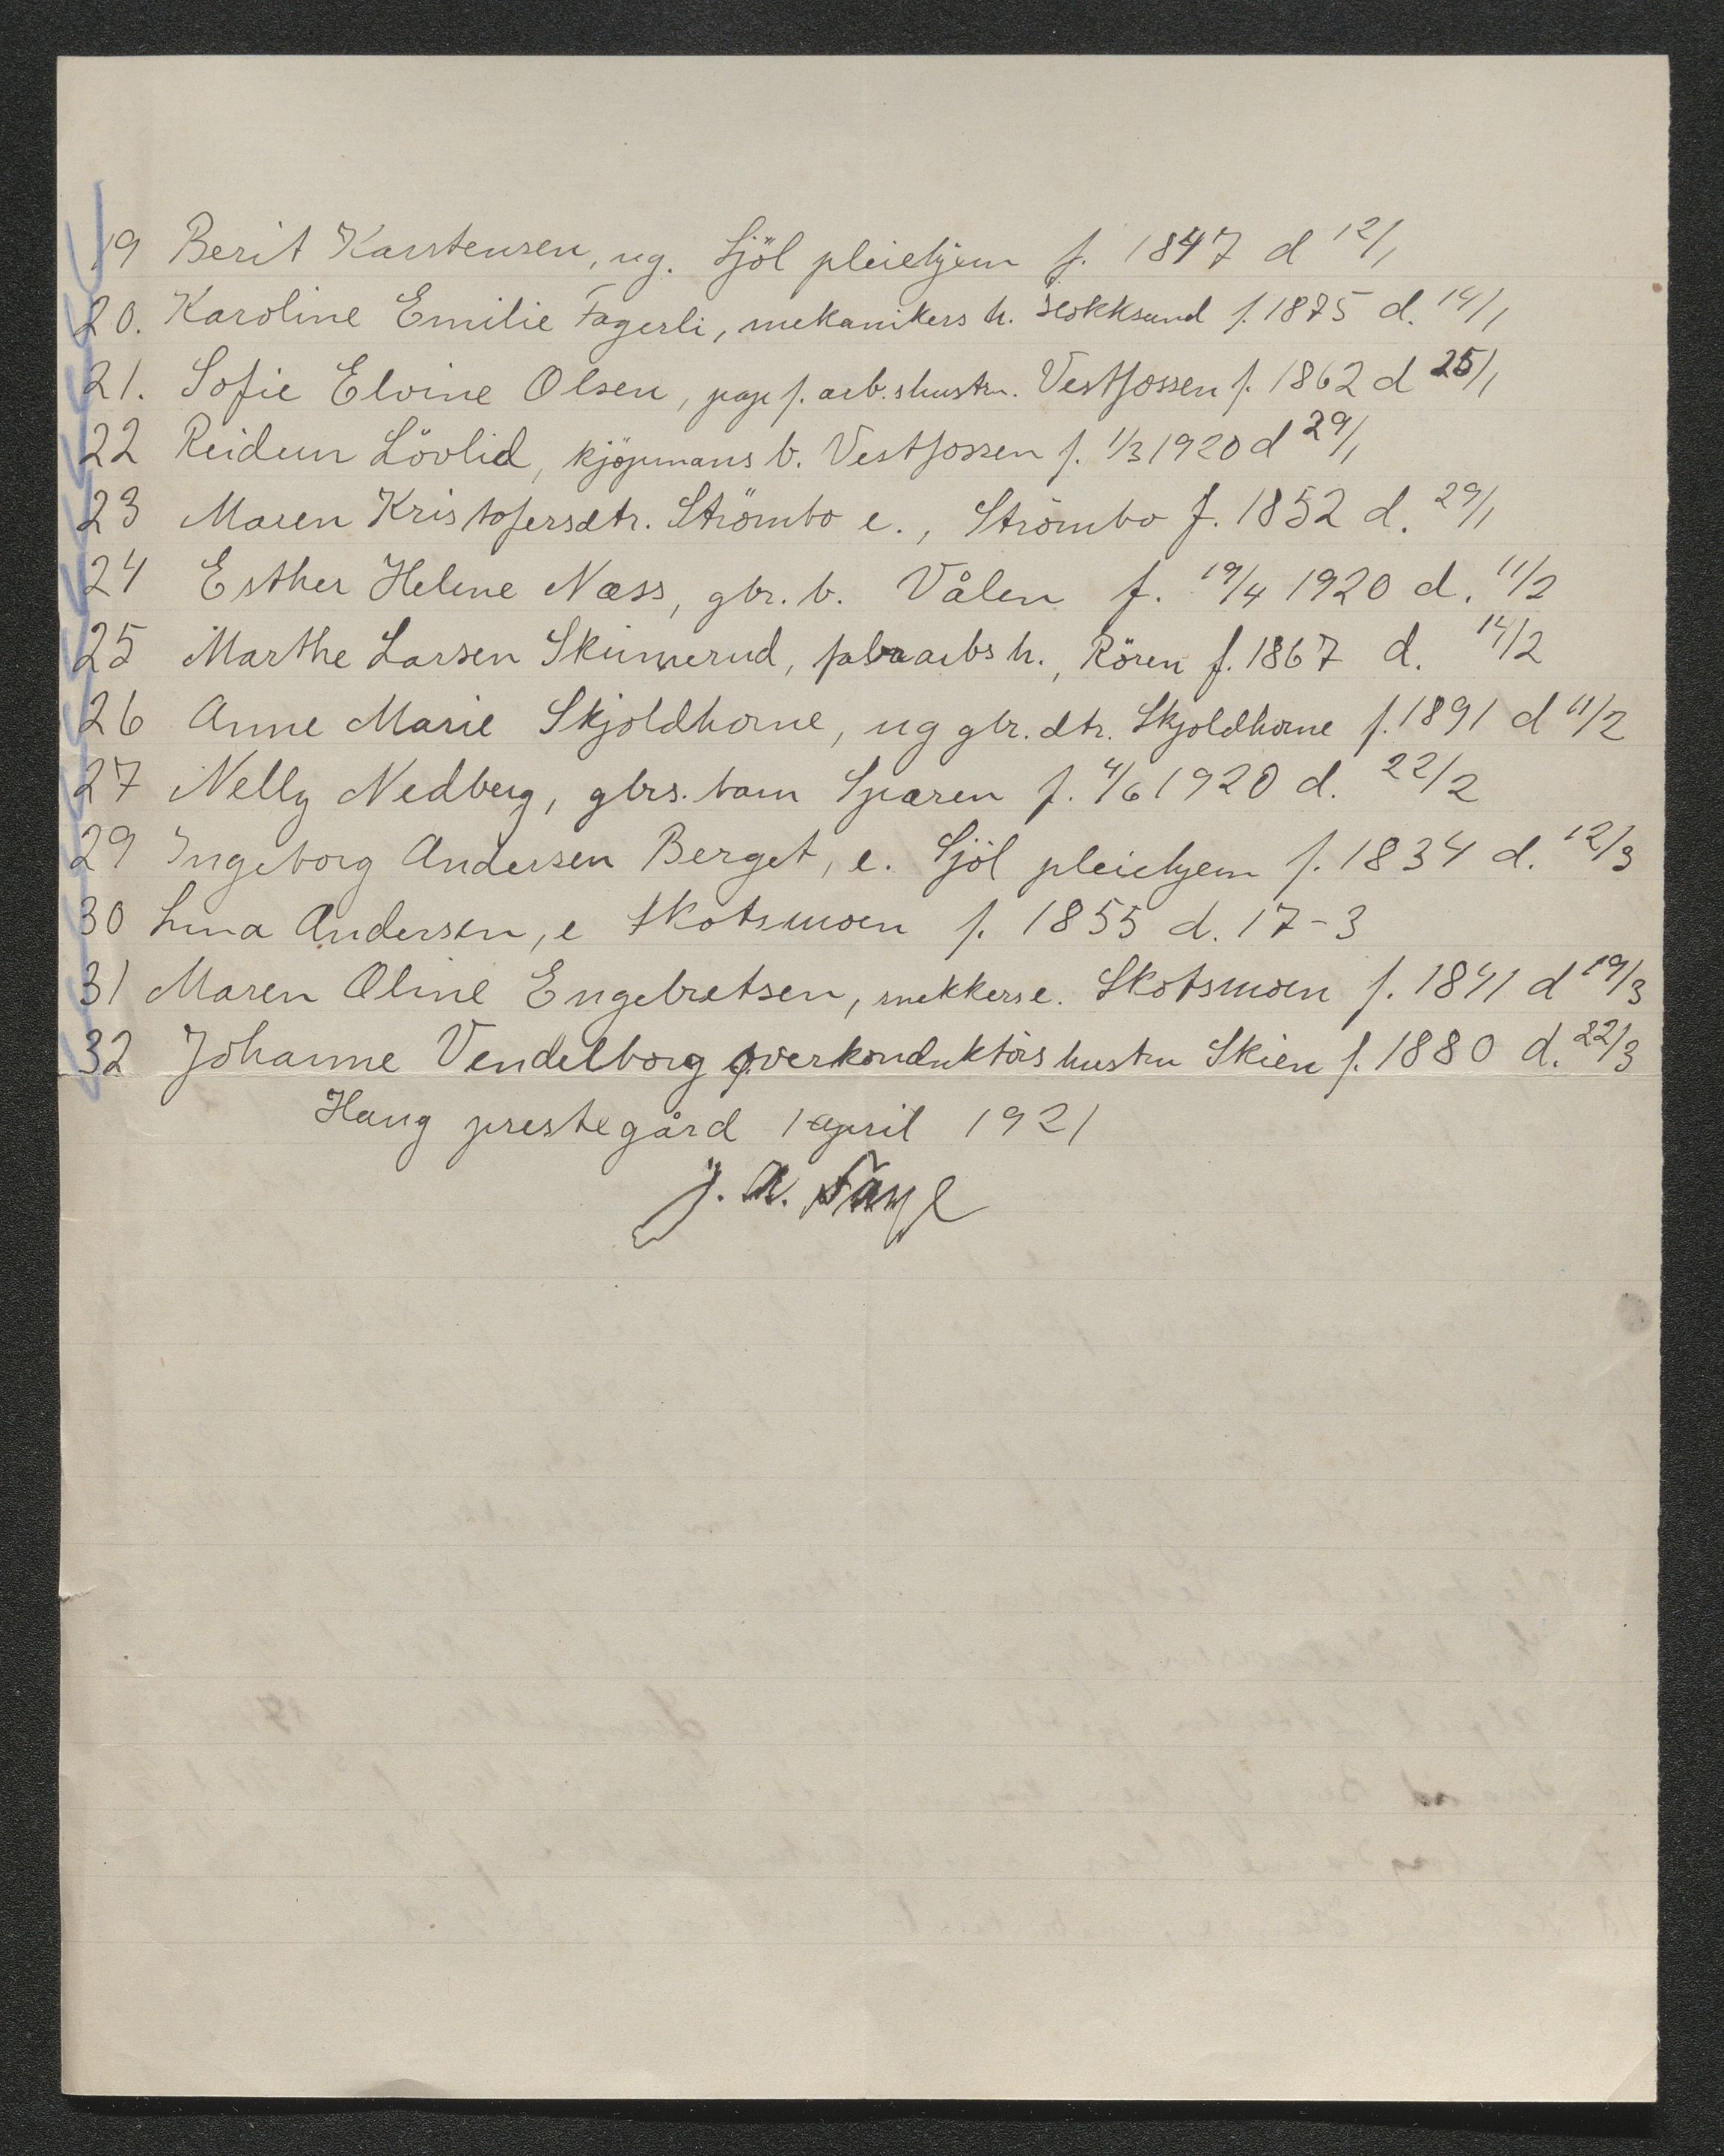 19 Berit Karstensen, ug. Sjöl pleiehjem f. 1847 d 12/1
20. Karoline Emilie Fagerli, mekanikers h. Hokksund f. 1875 d. 14/1
21. Sofie Elvine Olsen, pap f. arb.shustru. Vestfossen f. 1862 d 25/1
22 Reidun Lövlid, kjöpmans b. Vestfossen f. 1/3 1920 d 29/1
23 Maren Kristofersdtr. Strömbo e., Strömbo f. 1852 d. 29/1
24 Esther Helene Næss, gbr. b. Vålen f. 19/4 1920 d. 11/2
25 Marthe Larsen Skinnerud, arbs h., Rören f. 1867 d. 14/2
26 Anne Marie Skjoldhorne, ug gbr. dtr. Skjoldhorne f. 1891 d 11/2
27 Nelly Nedberg, gbrs. barn Sparen f. 4/6 1920 d. 22/2
29 Ingeborg Andersen Berget, e. Sjöl pleiehjem f. 1834 d. 12/3
30 Lina Andersen, e Skotsmoen f. 1855 d. 17-3
31 Maren Oline Engebretsen, snekkers e. Skotsmoen f. 1841 d 19/3
32 Johanne Vendelborg overkonduktörs hustru Skien f. 1880 d. 22/3
Haug prestegård 1 april 1921
J. A.